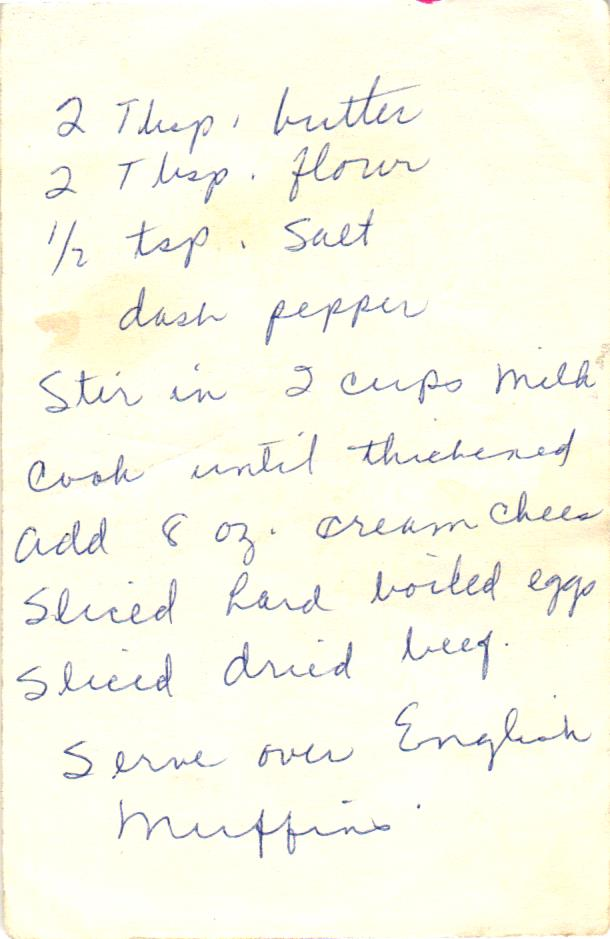 2 Tbsp. butter
2 Tbsp. flour
1/2 tsp. Salt
dash pepper
Stir in 2 cups Milk
Cook until thickened
add 8 oz. cream chees
Sliced hard boiled eggs
Sliced dried beef.
Serve over English
Muffins.